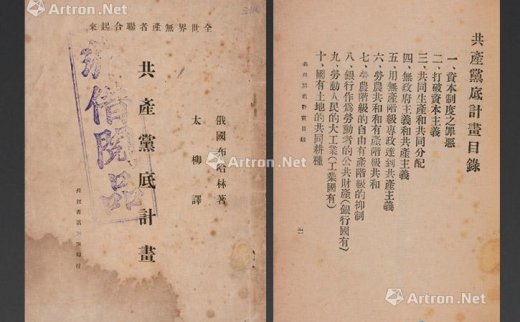 Artron.Net
全世界無產者聯合起來
俄國布哈林著
太柳譯
共產黨底計畫
借閱品
Artron.Net
共產黨底計畫目錄
一、資本制度之罪惡
二、打破資本主義
三、共同生產和共同分配
四、無政府主義和共產主義
五、用無產階級專政達到共產主義
六、勞農共和和有產階級共和
七、勞農階級的自由有產階級的抑制
八、銀行作為勞動者的公共財產(銀行國有)
九、勞動人民的大工業(工業國有)
十、國有土地的共同耕種
Artron.Net
Artron.Net